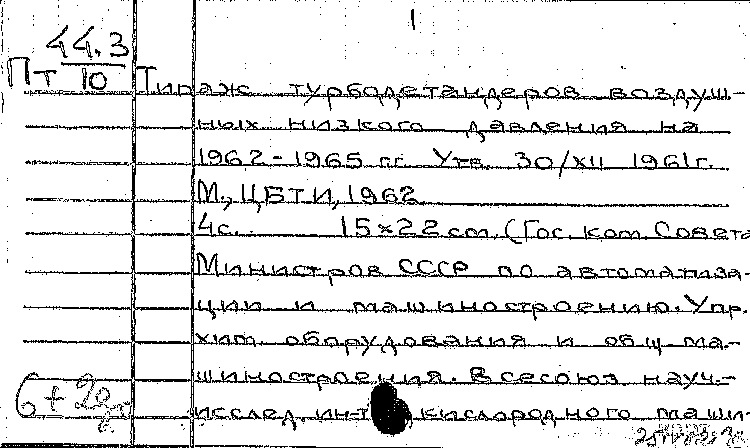 1
44.3
Пт 10 Типаж турбодетандеров воздуш-
ных низкого давления на
1962-1965 гг. Утв. 30/XII 1961г.
М., ЦБТИ, 1962
4с. 15×22 см. (Гос. ком. Совета
Министров СССР по автоматиза-
ции и машиностроению. Упр.
хим. оборудования и общ. ма-
шиностроения. Всесоюз. науч.-
исслед. ин-т кислородного маши-